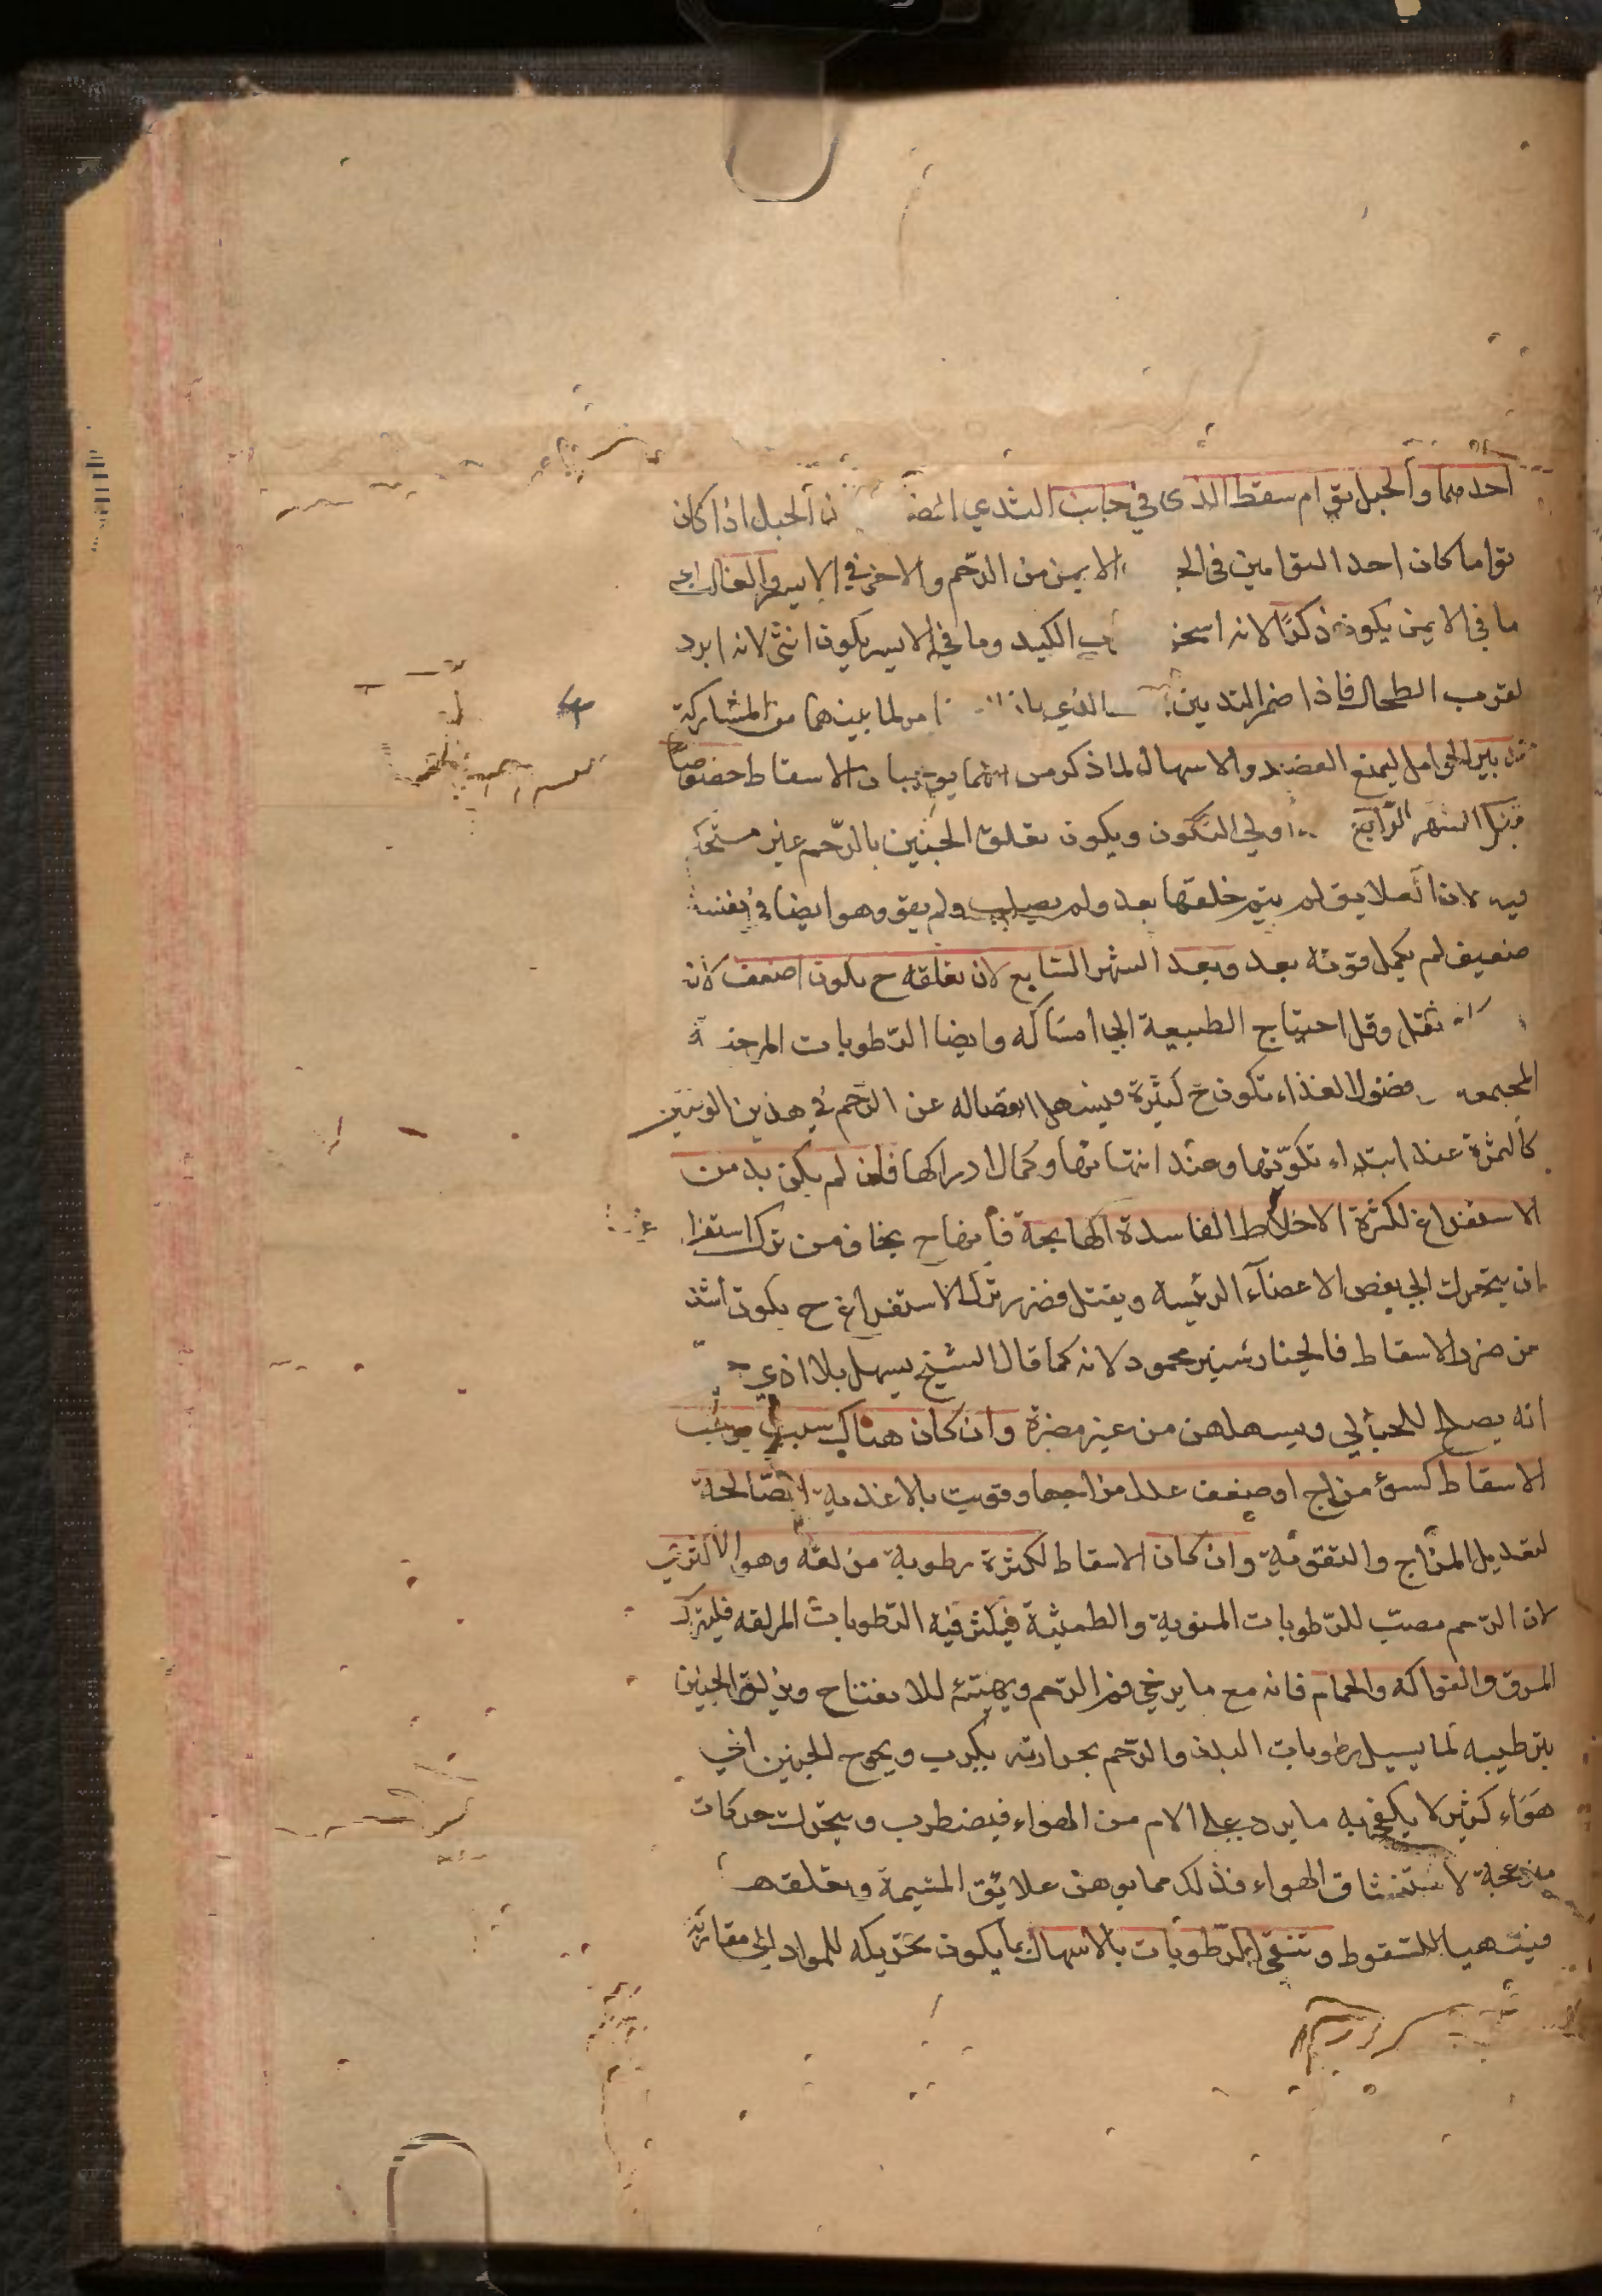 احدهما والحبل بتوام سقط الذى فى جانب الثدي الضا ن الحبل اذا كان
تواما كان احد التوامين فى الجا الايمن من الرحم والاخر في الايسر والغالب ان
ما فى الايمن يكون ذكرا لانه اسخن ب الكبد وما في الايسر يكون انثى لانه ابرد
لقرب الطحال فاذا ضمر الثديين الذي لما بينهما من المشاركة
تدبير الحوامل ليمنع الفصد والاسهال لما ذكر من انهما يوجبان الاسقاط خصوصا
قبل الشهر الرابع اولي التكون ويكون تعلق الجنين بالرحم غير مستحكم
فيه لان العلايق لم يتم خلقتها بعد ولم يصلب ولم يقو وهو ايضا فى نفسه
ضعيف لم يكمل قوته بعد وبعد الشهر السابع لان تعلقه ح يكون اضعف لان
ثقل وقل احتياج الطبيعة الى امساكه وايضا الرطوبات المرخية
المجتمعه فضول الغذاء تكون ح كثيرة فيسهل انفصاله عن الرحم في هذين الوقتين
كالثمرة عند ابتداء تكونها وعند انتهائها وكمال ادراكها فان لم يكن بد من
الاستفراغ لكثرة الاخلاط الفاسدة الهايجة فانها ح يخاف من ترك استفرا غها
ان يتحرك الى بعض الاعضاء الرئيسه ويقتل فضرر ترك الاستفراغ ح يكون اشد
من ضرر الاسقاط فالخيار شنبر محمود لانه كما قال الشيخ يسهل بلا اذي
انه يصلح للحبالي ويسهلهن من غير مضرة وان كان هناك سبب يوجب
الاسقاط كسوء مزاج او ضعف عدل مزاجها وقويت بالاغذية الصالحة
لتعديل المزاج والتقوية وان كان الاسقاط لكثرة رطوبة مزلقه وهو الاكثري
لان الرحم مصب للرطوبات المنوية والطمثية فيكثر فيه الرطوبات المزلقه فليترك
المرق والفواكه والحمام فانه مع ما يرخي فم الرحم ويهيئه للانفتاح ويزلق الجنين
بترطيبه لما يسيل رطوبات البدن والرحم بحرارته يكرب ويحوج الجنين الي
هواء كثير لا يكفي به ما يرد على الام من الهواء فيضطرب ويتحرك حركات
مزعجة لاستنشاق الهواء فذلك مما يوهن علايق المشيمة وتعلقه
فيتهيا للسقوط وتنقى الرطوبات بالاسهال بما يكون تحريكه للمواد الى مقاربه